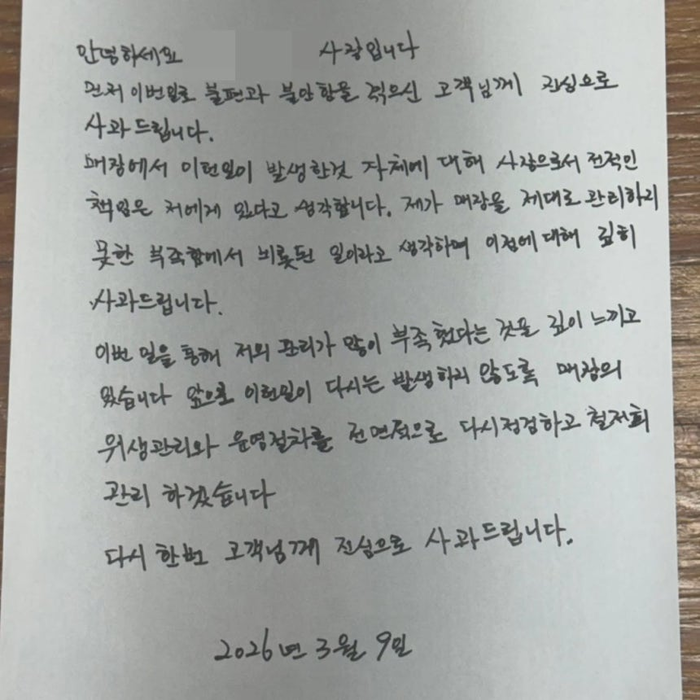 안녕하세요 사장입니다
먼저 이번일로 불편과 불안함을 겪으신 고객님께 진심으로
사과드립니다.
매장에서 이런일이 발생한것 자체에 대해 사장으로서 전적인
책임은 저에게 있다고 생각합니다. 제가 매장을 제대로 관리하지
못한 부족함에서 비롯된 일이라고 생각하며 이점에 대해 깊히
사과드립니다.
이번 일을 통해 저의 관리가 많이 부족했다는 것을 깊이 느끼고
있습니다 앞으로 이런일이 다시는 발생하지 않도록 매장의
위생관리와 운영절차를 전면적으로 다시점검하고 철저희
관리 하겠습니다
다시 한번 고객님께 진심으로 사과드립니다.
2026년 3월 9일